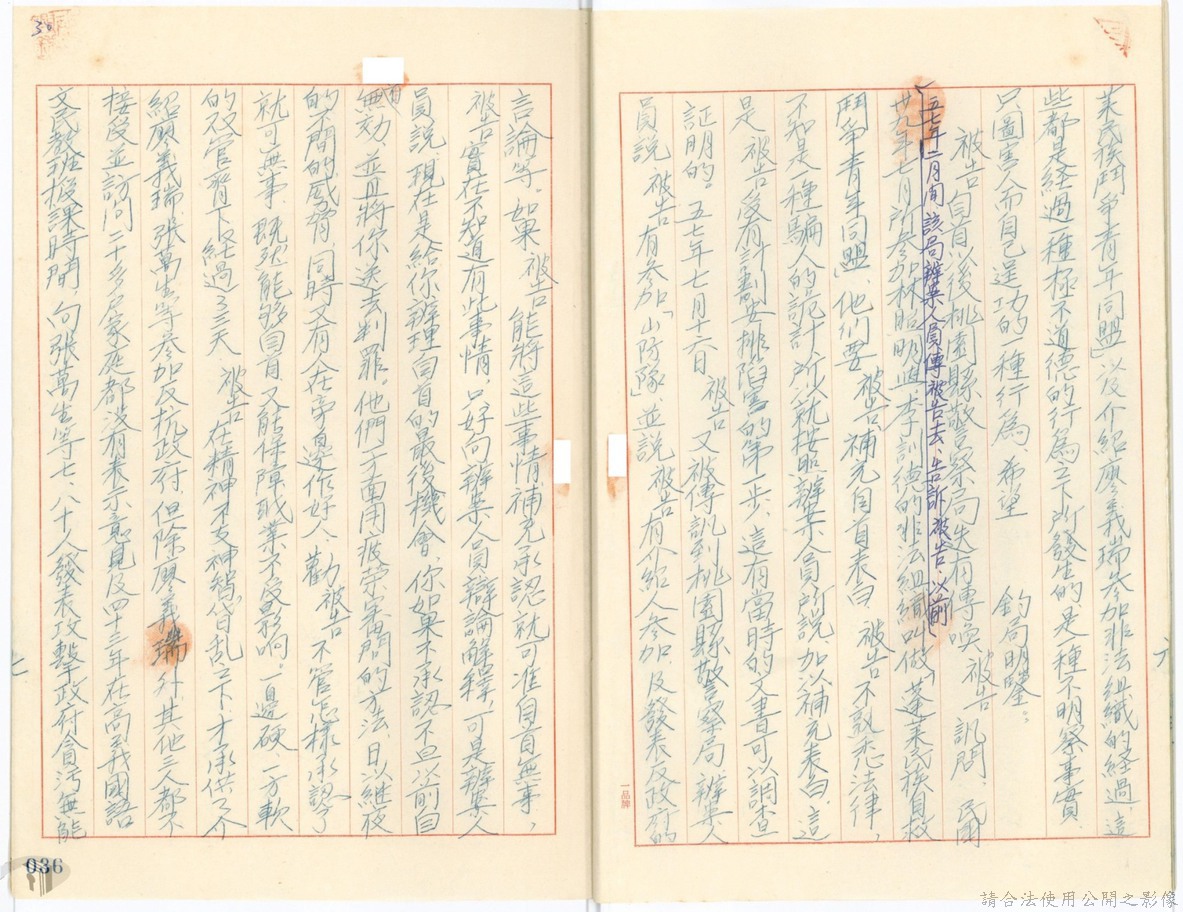 萊民族鬥爭青年同盟」以及介紹廖義瑞參加非法組織的經過這
些都是経過一種極不道德的行為之下所發生的、是一種不明察事實、
只圖害人而自己達功的一種行為、希望 鈞局明鑒。
被告自首以後桃園縣警察局迭有傳喚被告訊問、民國
五七年二月間該局辦案人員傳被告去、告訴被告、以前
卅九年七月所參加林昭明與李訓德的非法組織叫做「蓬萊民族自救
鬥爭青年同盟、他們要被告補充自首表白被告不熟悉法律，
不知是一種騙人的詭計所以就按照辦案人員所說、加以補充表白、這
是被告受有計劃安排陷害的第一步、這有當時的文書可以調查
証明的。五七年七月十六日被告又被傳訊到桃園縣警察局辦案人
員說被告有參加「山防隊」、並說被告有介紹人參加、及發表反政府的
六
言論等。如果被告能將這些事情補充承認就可准自首無事，
被告實在不知道有此事情，只好向辦案人員辯論解釋，可是辦案人
員說「現在是給你辦理自首的最後機會、你如果不承認不但以前自
首無効、並且將你送去判罪。他們一方面用疲勞審問的方法、日以継夜
的不間的威脅，同時又有人在旁邊作好人、勸被告不管怎樣承認了
就可無事、既然能够自首、又能保障職業不受影响。一邊硬一方軟
的双管齊下経過了三天被告在精神不支神智昏乱之下、才承供了介
紹廖義瑞、張萬生等參加反抗政府、但除廖義瑞外、其他三人都不
接受並訪問二十多戶家庭都没有表示意見及四十三年在高義國語
文民教班授課時間、向張萬生等七、八十人發表攻擊政府貪污無能
七
30
036
一品牌
請合法使用公開之影像